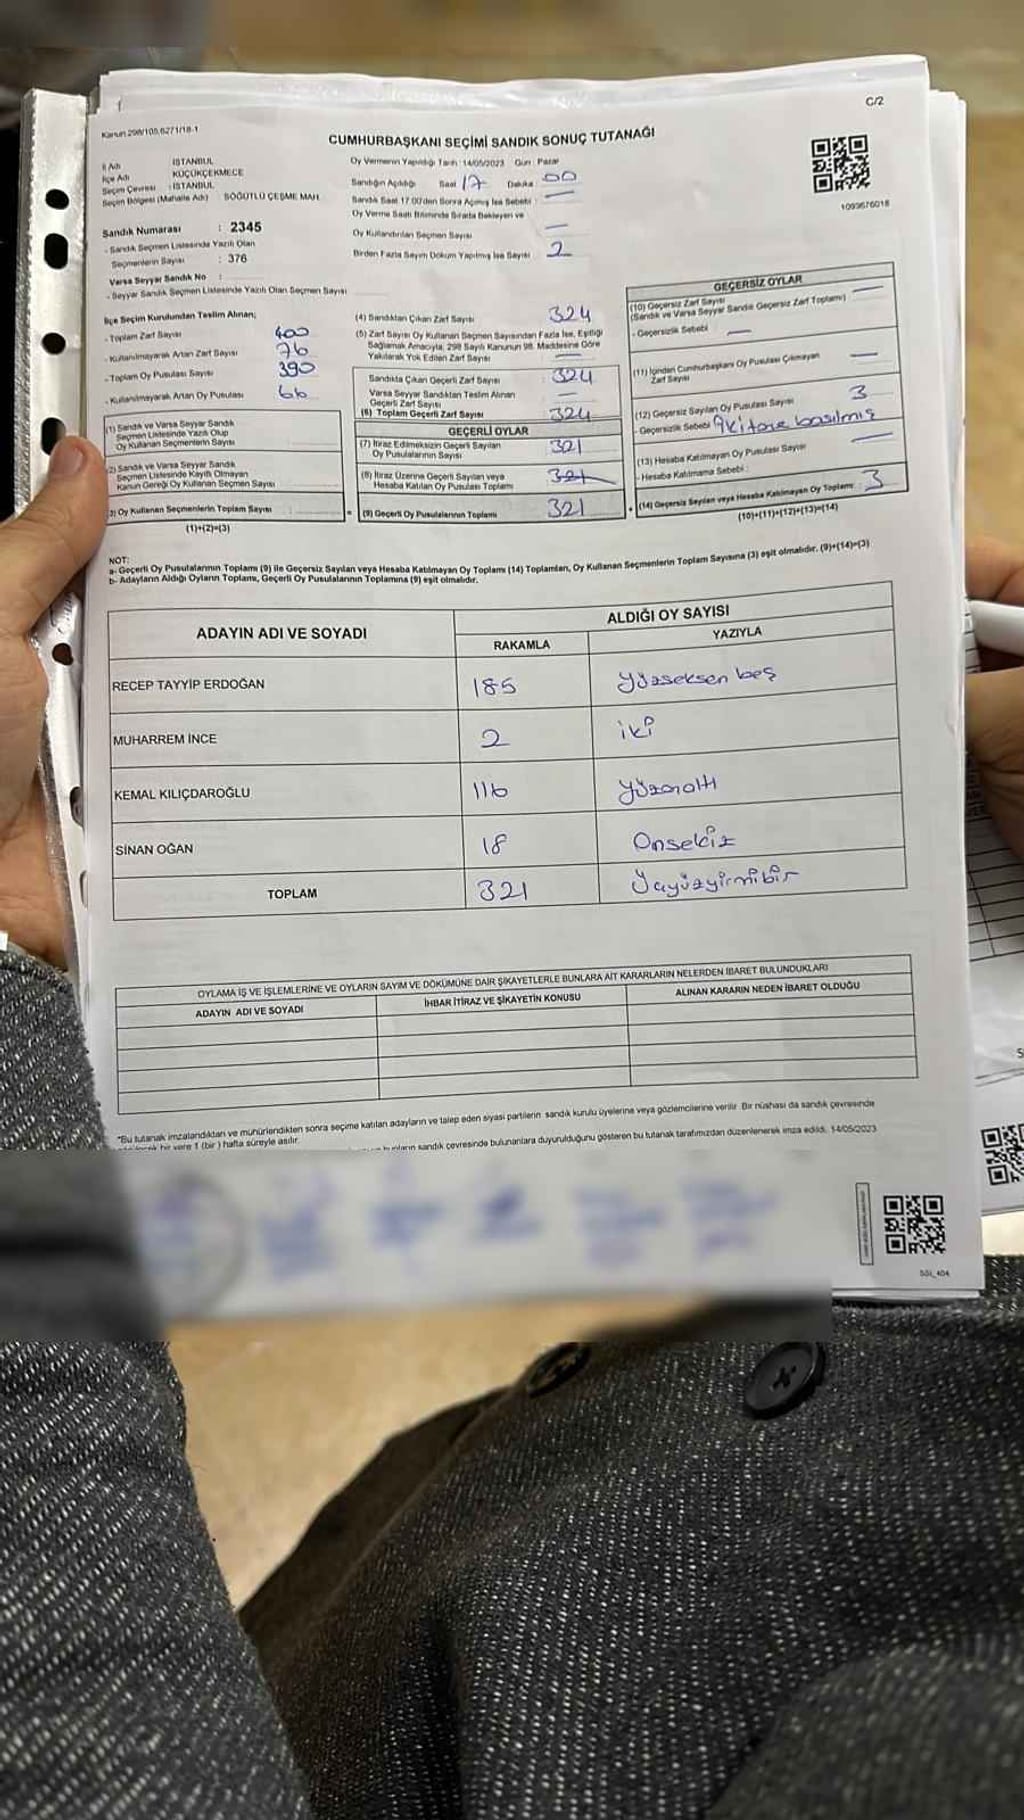 C/2
Kanun 298/105,6271/18-1
CUMHURBAŞKANI SEÇİMİ SANDIK SONUÇ TUTANAĞI
İl Adı İSTANBUL
İlçe Adı KÜÇÜKÇEKMECE
Seçim Çevresi : İSTANBUL
Seçim Bölgesi (Mahalle Adı) : SÖĞÜTLÜ ÇEŞME MAH.
Sandık Numarası : 2345
- Sandık Seçmen Listesinde Yazılı Olan
Seçmenlerin Sayısı : 376
Varsa Seyyar Sandık No :
- Seyyar Sandık Seçmen Listesinde Yazılı Olan Seçmen Sayısı
Oy Vermenin Yapıldığı Tarih : 14/05/2023 Gün : Pazar
Sandığın Açıldığı Saat 17 Dakika 00
Sandık Saat 17.00'den Sonra Açılmış İse Sebebi : —
Oy Verme Saati Bitiminde Sırada Bekleyen ve
Oy Kullandırılan Seçmen Sayısı —
Birden Fazla Sayım Döküm Yapılmış İse Sayısı 2
1093676018
İlçe Seçim Kurulundan Teslim Alınan;
- Toplam Zarf Sayısı 400
- Kullanılmayarak Artan Zarf Sayısı 76
- Toplam Oy Pusulası Sayısı 390
- Kullanılmayarak Artan Oy Pusulası 66
(1) Sandık ve Varsa Seyyar Sandık
Seçmen Listesinde Yazılı Olup
Oy Kullanan Seçmenlerin Sayısı
(2) Sandık ve Varsa Seyyar Sandık
Seçmen Listesinde Kayıtlı Olmayan
Kanun Gereği Oy Kullanan Seçmen Sayısı
(3) Oy Kullanan Seçmenlerin Toplam Sayısı :
(1)+(2)=(3)
(4) Sandıktan Çıkan Zarf Sayısı 324
(5) Zarf Sayısı Oy Kullanan Seçmen Sayısından Fazla İse, Eşitliği
Sağlamak Amacıyla, 298 Sayılı Kanunun 98. Maddesine Göre
Yakılarak Yok Edilen Zarf Sayısı —
Sandıkta Çıkan Geçerli Zarf Sayısı : 324
Varsa Seyyar Sandıktan Teslim Alınan
Geçerli Zarf Sayısı —
(6) Toplam Geçerli Zarf Sayısı 324
GEÇERLİ OYLAR
(7) İtiraz Edilmeksizin Geçerli Sayılan
Oy Pusulalarının Sayısı 321
(8) İtiraz Üzerine Geçerli Sayılan veya
Hesaba Katılan Oy Pusulası Toplamı 321
= (9) Geçerli Oy Pusulalarının Toplamı 321
GEÇERSİZ OYLAR
(10) Geçersiz Zarf Sayısı —
(Sandık ve Varsa Seyyar Sandık Geçersiz Zarf Toplamı)
- Geçersizlik Sebebi : —
(11) İçinden Cumhurbaşkanı Oy Pusulası Çıkmayan
Zarf Sayısı —
(12) Geçersiz Sayılan Oy Pusulası Sayısı 3
- Geçersizlik Sebebi iki tane basılmış
(13) Hesaba Katılmayan Oy Pusulası Sayısı —
- Hesaba Katılmama Sebebi :
+ (14) Geçersiz Sayılan veya Hesaba Katılmayan Oy Toplamı : 3
(10)+(11)+(12)+(13)=(14)
NOT:
a- Geçerli Oy Pusulalarının Toplamı (9) ile Geçersiz Sayılan veya Hesaba Katılmayan Oy Toplamı (14) Toplamları, Oy Kullanan Seçmenlerin Toplam Sayısına (3) eşit olmalıdır. (9)+(14)=(3)
b- Adayların Aldığı Oyların Toplamı, Geçerli Oy Pusulalarının Toplamına (9) eşit olmalıdır.
ADAYIN ADI VE SOYADI
ALDIĞI OY SAYISI
RAKAMLA YAZIYLA
RECEP TAYYİP ERDOĞAN 185 Yüzseksen beş
MUHARREM İNCE 2 iki
KEMAL KILIÇDAROĞLU 116 Yüzonaltı
SİNAN OĞAN 18 Onsekiz
TOPLAM 321 Üçyüzyirmibir
OYLAMA İŞ VE İŞLEMLERİNE VE OYLARIN SAYIM VE DÖKÜMÜNE DAİR ŞİKAYETLERLE BUNLARA AİT KARARLARIN NELERDEN İBARET BULUNDUKLARI
ADAYIN ADI VE SOYADI İHBAR İTİRAZ VE ŞİKAYETİN KONUSU ALINAN KARARIN NEDEN İBARET OLDUĞU
*Bu tutanak imzalandıktan ve mühürlendikten sonra seçime katılan adayların ve talep eden siyasi partilerin sandık kurulu üyelerine veya gözlemcilerine verilir. Bir nüshası da sandık çevresinde
bir yere 1 (bir) hafta süreyle asılır.
sandık çevresinde bulunanlara duyurulduğunu gösteren bu tutanak tarafımızdan düzenlenerek imza edildi. 14/05/2023
SSL_404